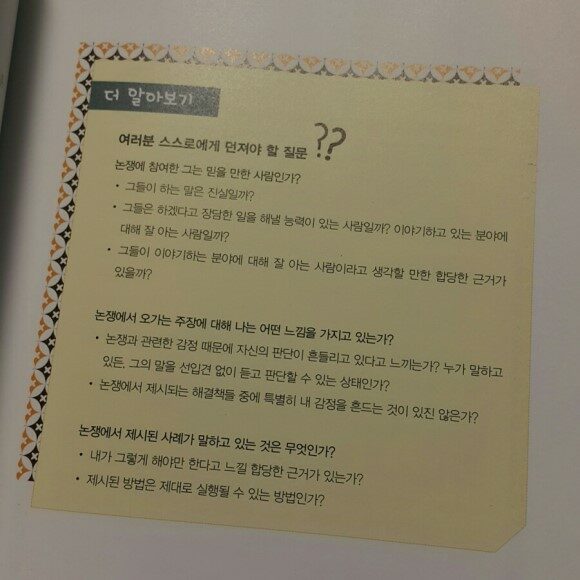 더 알아보기
여러분 스스로에게 던져야 할 질문 ??
논쟁에 참여한 그는 믿을 만한 사람인가?
• 그들이 하는 말은 진실일까?
• 그들은 하겠다고 장담한 일을 해낼 능력이 있는 사람일까? 이야기하고 있는 분야에
대해 잘 아는 사람일까?
• 그들이 이야기하는 분야에 대해 잘 아는 사람이라고 생각할 만한 합당한 근거가
있을까?
논쟁에서 오가는 주장에 대해 나는 어떤 느낌을 가지고 있는가?
• 논쟁과 관련한 감정 때문에 자신의 판단이 흔들리고 있다고 느끼는가? 누가 말하고
있든, 그의 말을 선입견 없이 듣고 판단할 수 있는 상태인가?
• 논쟁에서 제시되는 해결책들 중에 특별히 내 감정을 흔드는 것이 있진 않은가?
논쟁에서 제시된 사례가 말하고 있는 것은 무엇인가?
• 내가 그렇게 해야만 한다고 느낄 합당한 근거가 있는가?
• 제시된 방법은 제대로 실행될 수 있는 방법인가?